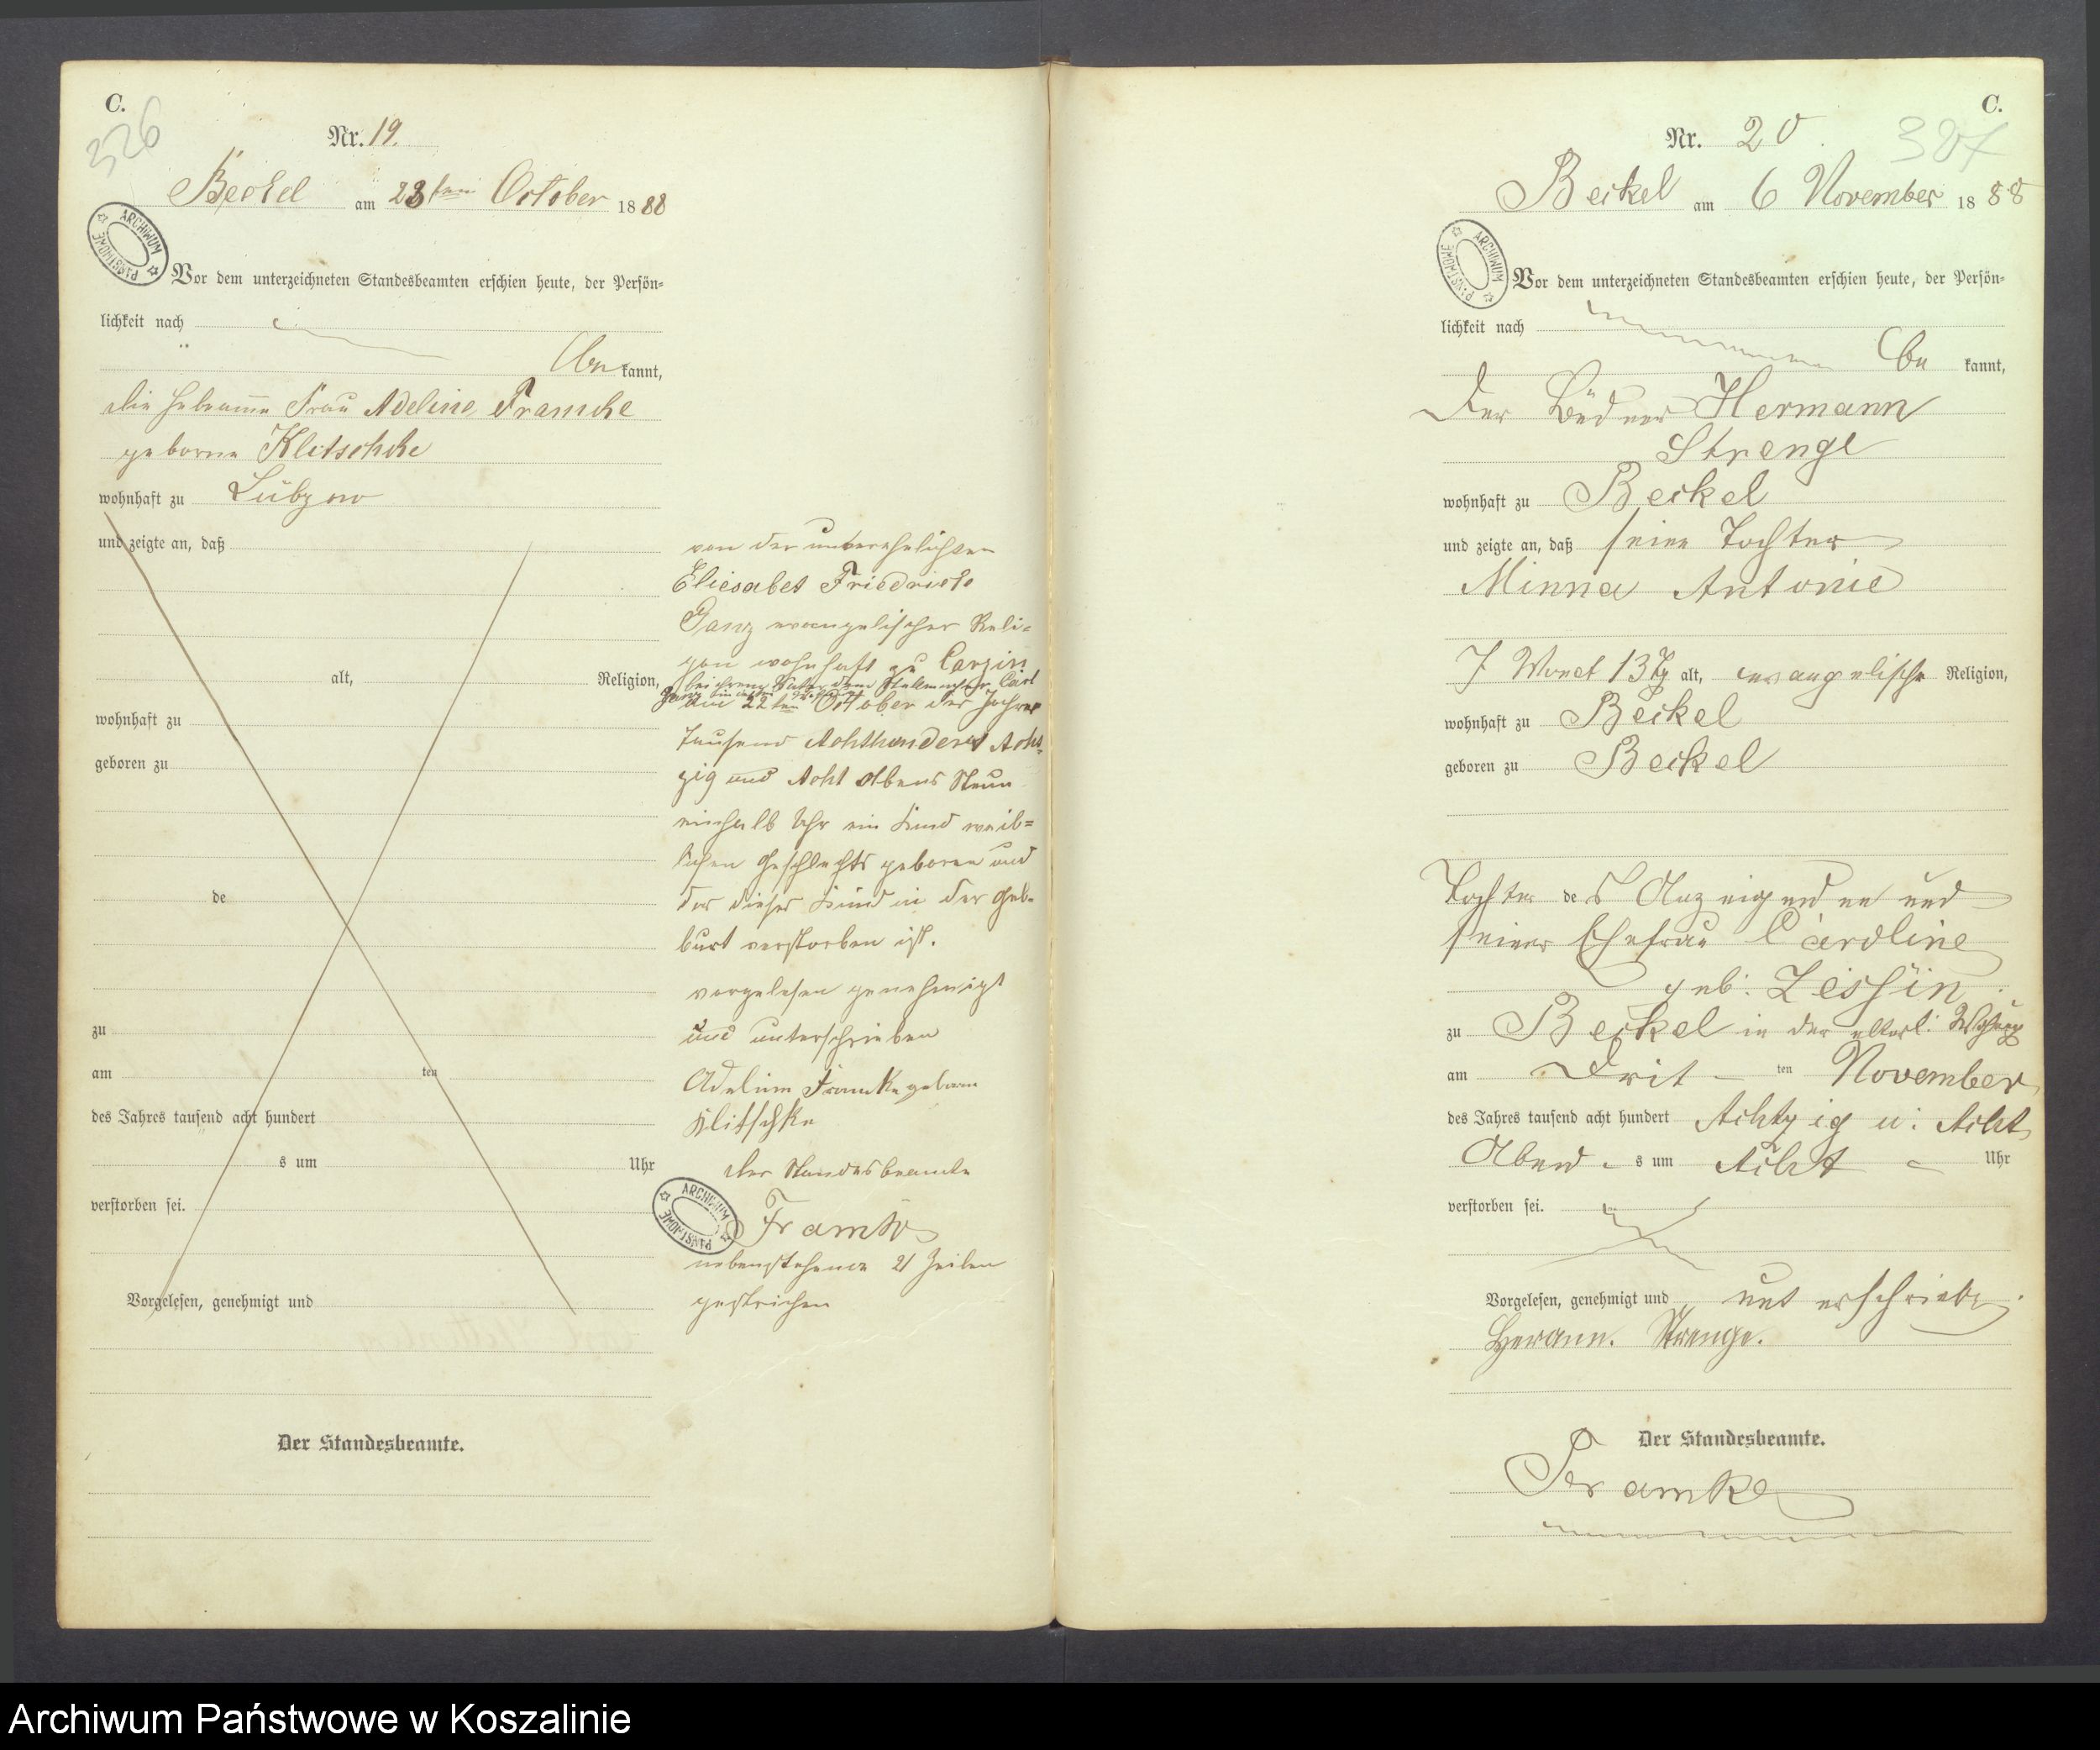 C.
326
Nr. 19.
Beckel am 23ten October 1888
ARCHIWUM PAŃSTWOWE
Vor dem unterzeichneten Standesbeamten erschien heute, der Persön-
lichkeit nach
be kannt,
die Hebamme Frau Adeline Framcke
geborne Klitschke
wohnhaft zu Lübzow
und zeigte an, daß
alt, Religion,
wohnhaft zu
geboren zu
de
zu
am ten
des Jahres tausend acht hundert
s um Uhr
verstorben sei.
Vorgelesen, genehmigt und
Der Standesbeamte.
von der unverehelichten
Eliesabet Friedricke
Panz evangelischer Reli-
gion wohnhaft zu Carzin
bei ihrem Vater dem Stellmacher Carl
am 22ten October des Jahres
tausend Achthundert Acht-
zig und Acht Abends Neun
einhalb Uhr ein Kind weib-
lichen Geschlechts geboren und
das dieses Kind in der Geb-
burt verstorben ist.
vorgelesen genehmigt
und unterschrieben
Adeline Framke geborne
Klitschke
der Standesbeamte
ARCHIWUM PAŃSTWOWE
Framke
nebenstehende 21 Zeilen
gestrichen
C.
Nr. 20.
327
Beckel am 6 November 1888
ARCHIWUM PAŃSTWOWE
Vor dem unterzeichneten Standesbeamten erschien heute, der Persön-
lichkeit nach
be kannt,
der Büdner Hermann
Strenge
wohnhaft zu Beckel
und zeigte an, daß seine Tochter
Minna Antonie
7 Monat 13 Tg alt, evangelische Religion,
wohnhaft zu Beckel
geboren zu Beckel
Tochter des Anzeigenden und
seiner Ehefrau Caroline
geb. Zessin
zu Beckel in der elterl. Wohnung
am Drit ten November
des Jahres tausend acht hundert Achtzig u. Acht
Abend s um Acht Uhr
verstorben sei.
Vorgelesen, genehmigt und unterschrieben.
Hermann. Strenge.
Der Standesbeamte.
Framke
Archiwum Państwowe w Koszalinie